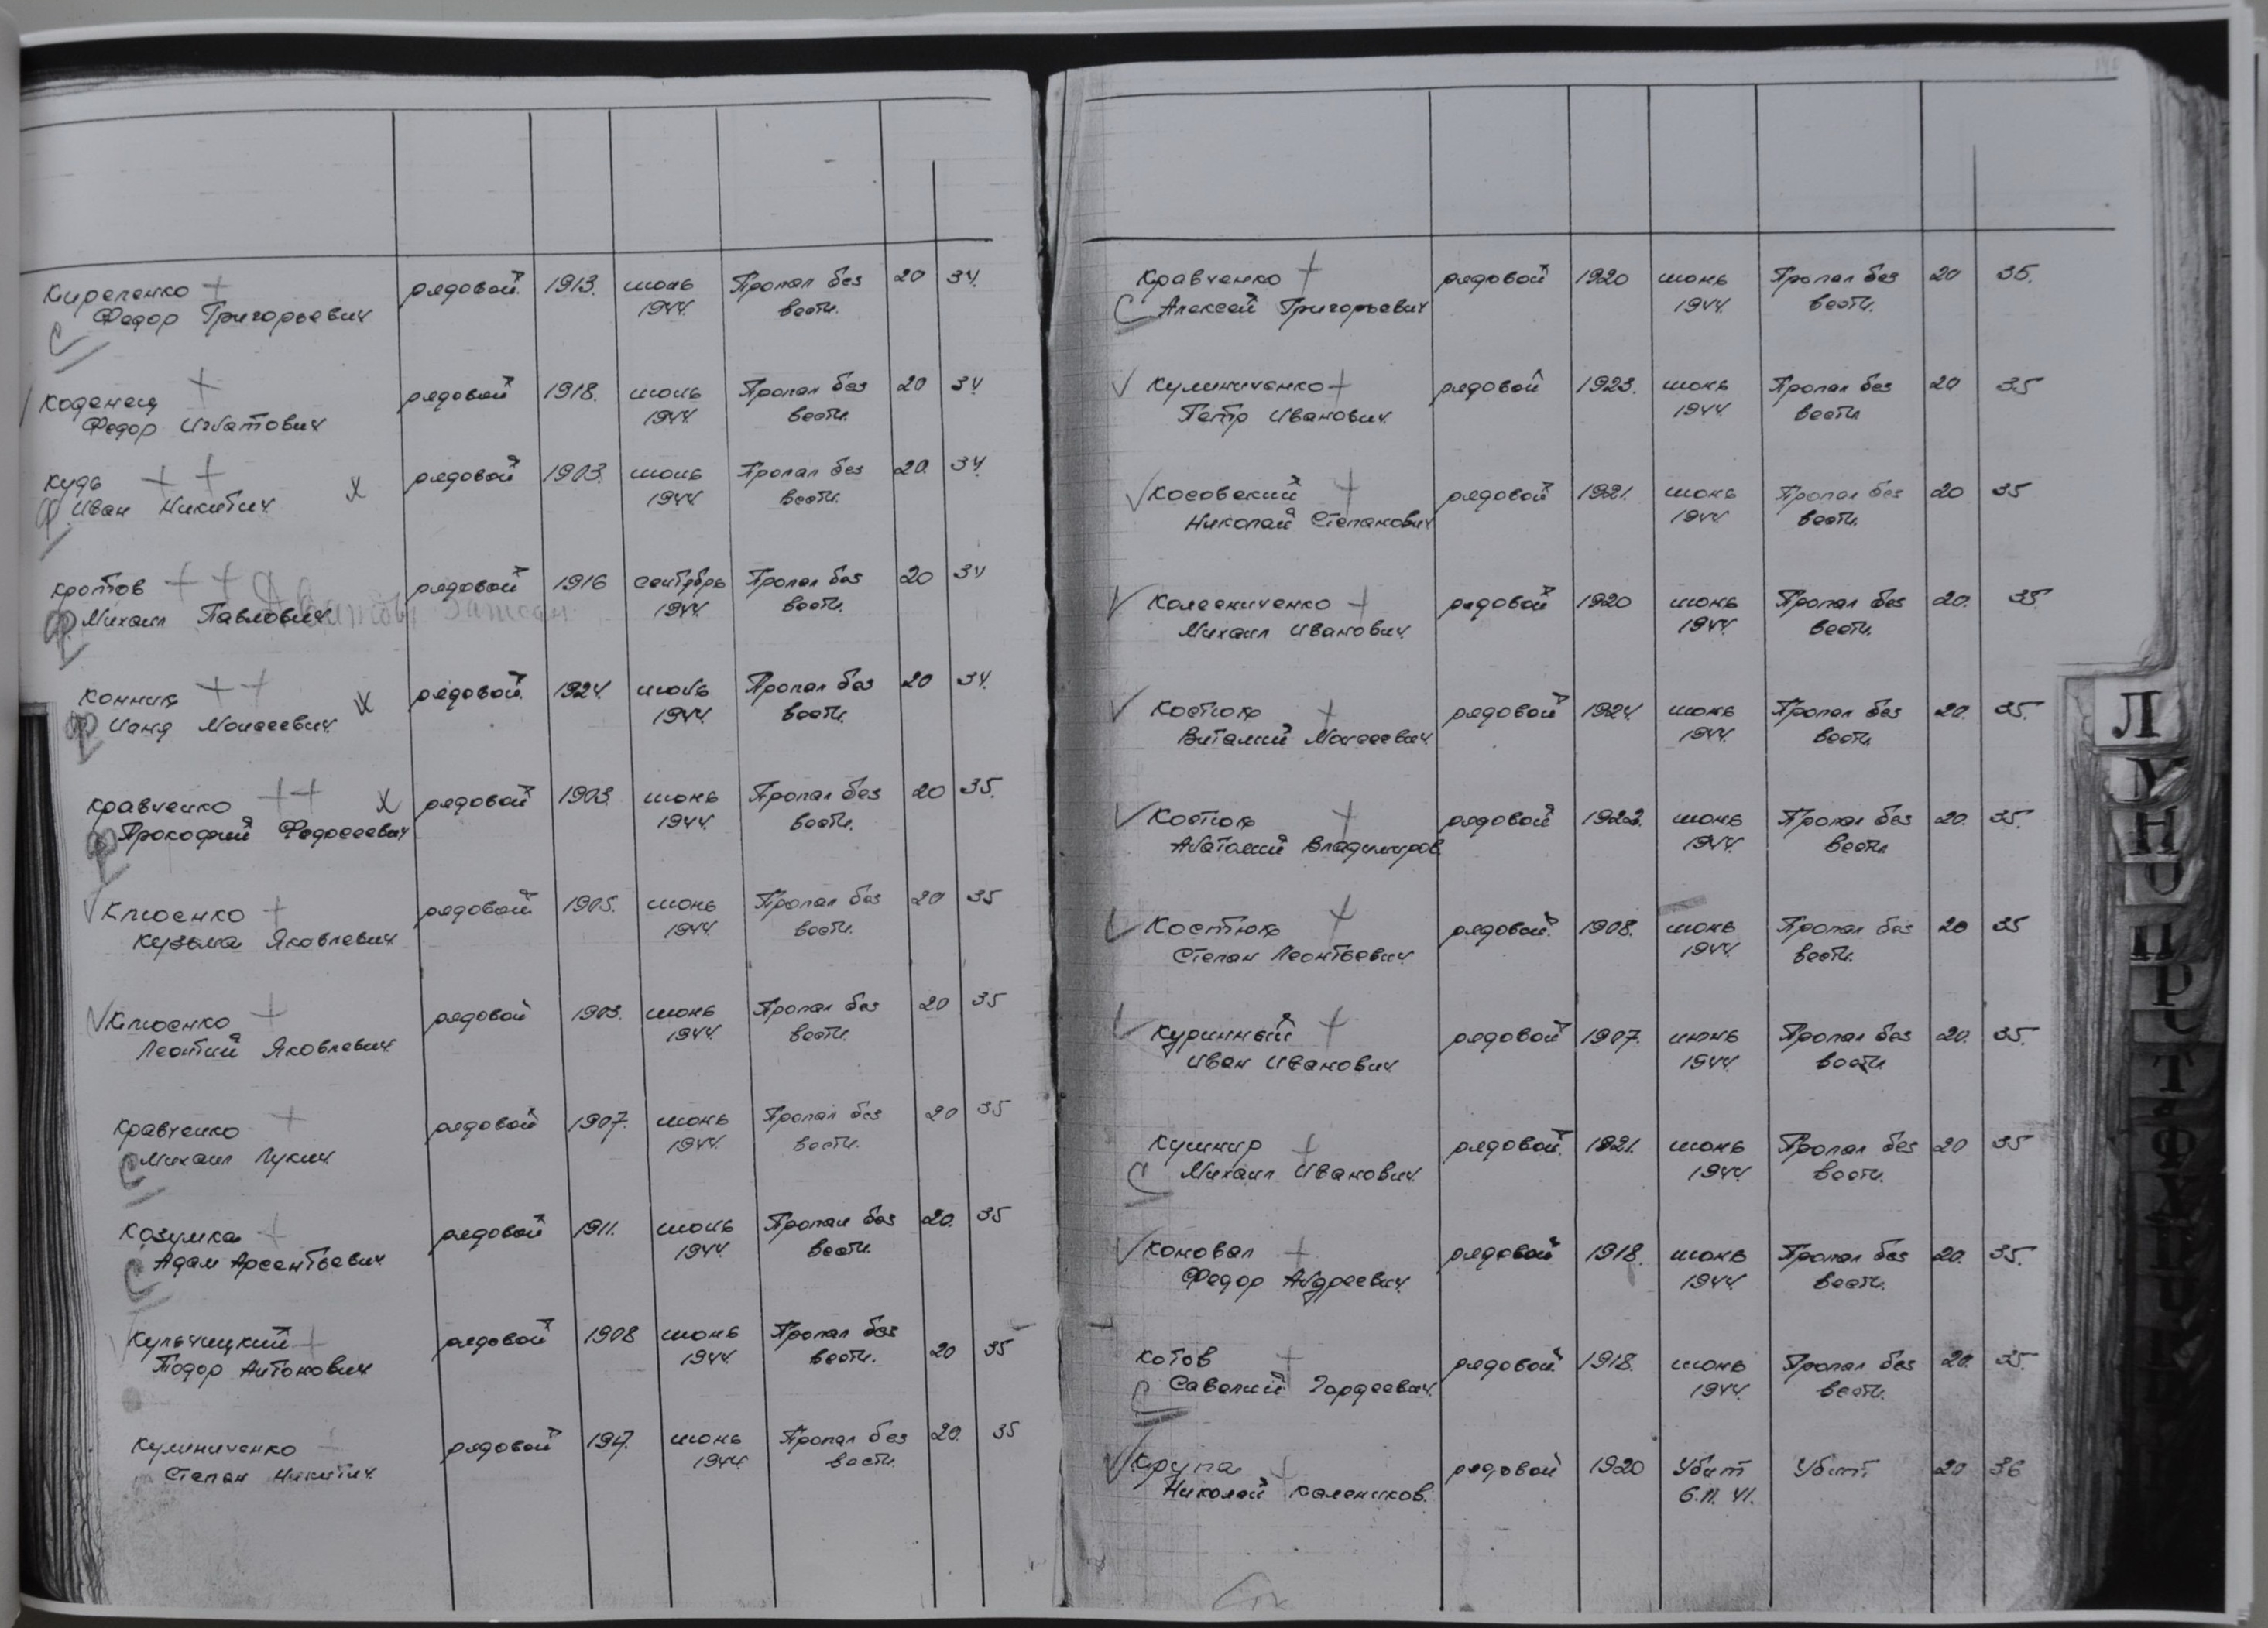 Киреленко
Федор Григорьевич
рядовой. 1913. июнь 1944. Пропал без вести. 20 34.
Коденец
Федор Игнатович
рядовой 1918. июнь 1944. Пропал без вести. 20 34
Кудь
Иван Никитич
х рядовой 1903. июнь 1944 Пропал без вести. 20. 34.
Кротов
Михаил Павлович
рядовой 1916 сентябрь 1944. Пропал без вести. 20 34
Конник
Моисеевич
х рядовой. 1924. июнь 1944. Пропал без вести. 20 34.
Кравченко
Прокофий Федосеевич
х рядовой 1903. июнь 1944. Пропал без вести. 20 35.
Клюенко
Кузьма Яковлевич
рядовой 1905. июнь 1944. Пропал без вести. 20 35
Клюенко
Леонтий Яковлевич
рядовой 1903. июнь 1944. Пропал без вести. 20 35
Кравченко
Михаил Лукич
рядовой 1907. июнь 1944. Пропал без вести. 20 35
Козумка
Адам Арсентьевич
рядовой 1911. июнь 1944. Пропал без вести. 20. 35
Кульчицкий
Тодор Антонович
рядовой 1908 июнь 1944. Пропал без вести. 20 35
Кулиниченко
Степан Никитич
рядовой 1917. июнь 1944. Пропал без вести. 20. 35
Кравченко
С Алексей Григорьевич
рядовой 1920 июнь 1944. Пропал без вести. 20 35.
Кулиниченко
Петр Иванович.
рядовой 1923. июнь 1944 Пропал без вести 20 35
Косовский
Николай Степанович
рядовой 1921. июнь 1944 Пропал без вести. 20 35
Колесниченко
Михаил Иванович.
рядовой 1920 июнь 1944. Пропал без вести. 20. 35.
Костюк
Виталий Моисеевич.
рядовой 1924. июнь 1944. Пропал без вести. 20. 35.
Костюк
Анатолий Владимиров.
рядовой 1922. июнь 1944. Пропал без вести 20. 35.
Костюк
Степан Леонтьевич.
рядовой. 1908. июнь 1944. Пропал без вести. 20 35
Куринный
Иван Иванович
рядовой 1907. июнь 1944. Пропал без вести 20. 35.
Кушнир
С Михаил Иванович.
рядовой. 1921. июнь 1944. Пропал без вести. 20 35
Коновал
Федор Андреевич.
рядовой 1918. июнь 1944. Пропал без вести. 20. 35.
Котов
С Савелий Гордеевич.
рядовой 1918. июнь 1944. Пропал без вести. 20. 35.
Крупа
Николай Калеников.
рядовой 1920 Убит 6.11.41. Убит. 20 36
Л
У
Н
О
П
Р
С
Т
Ф